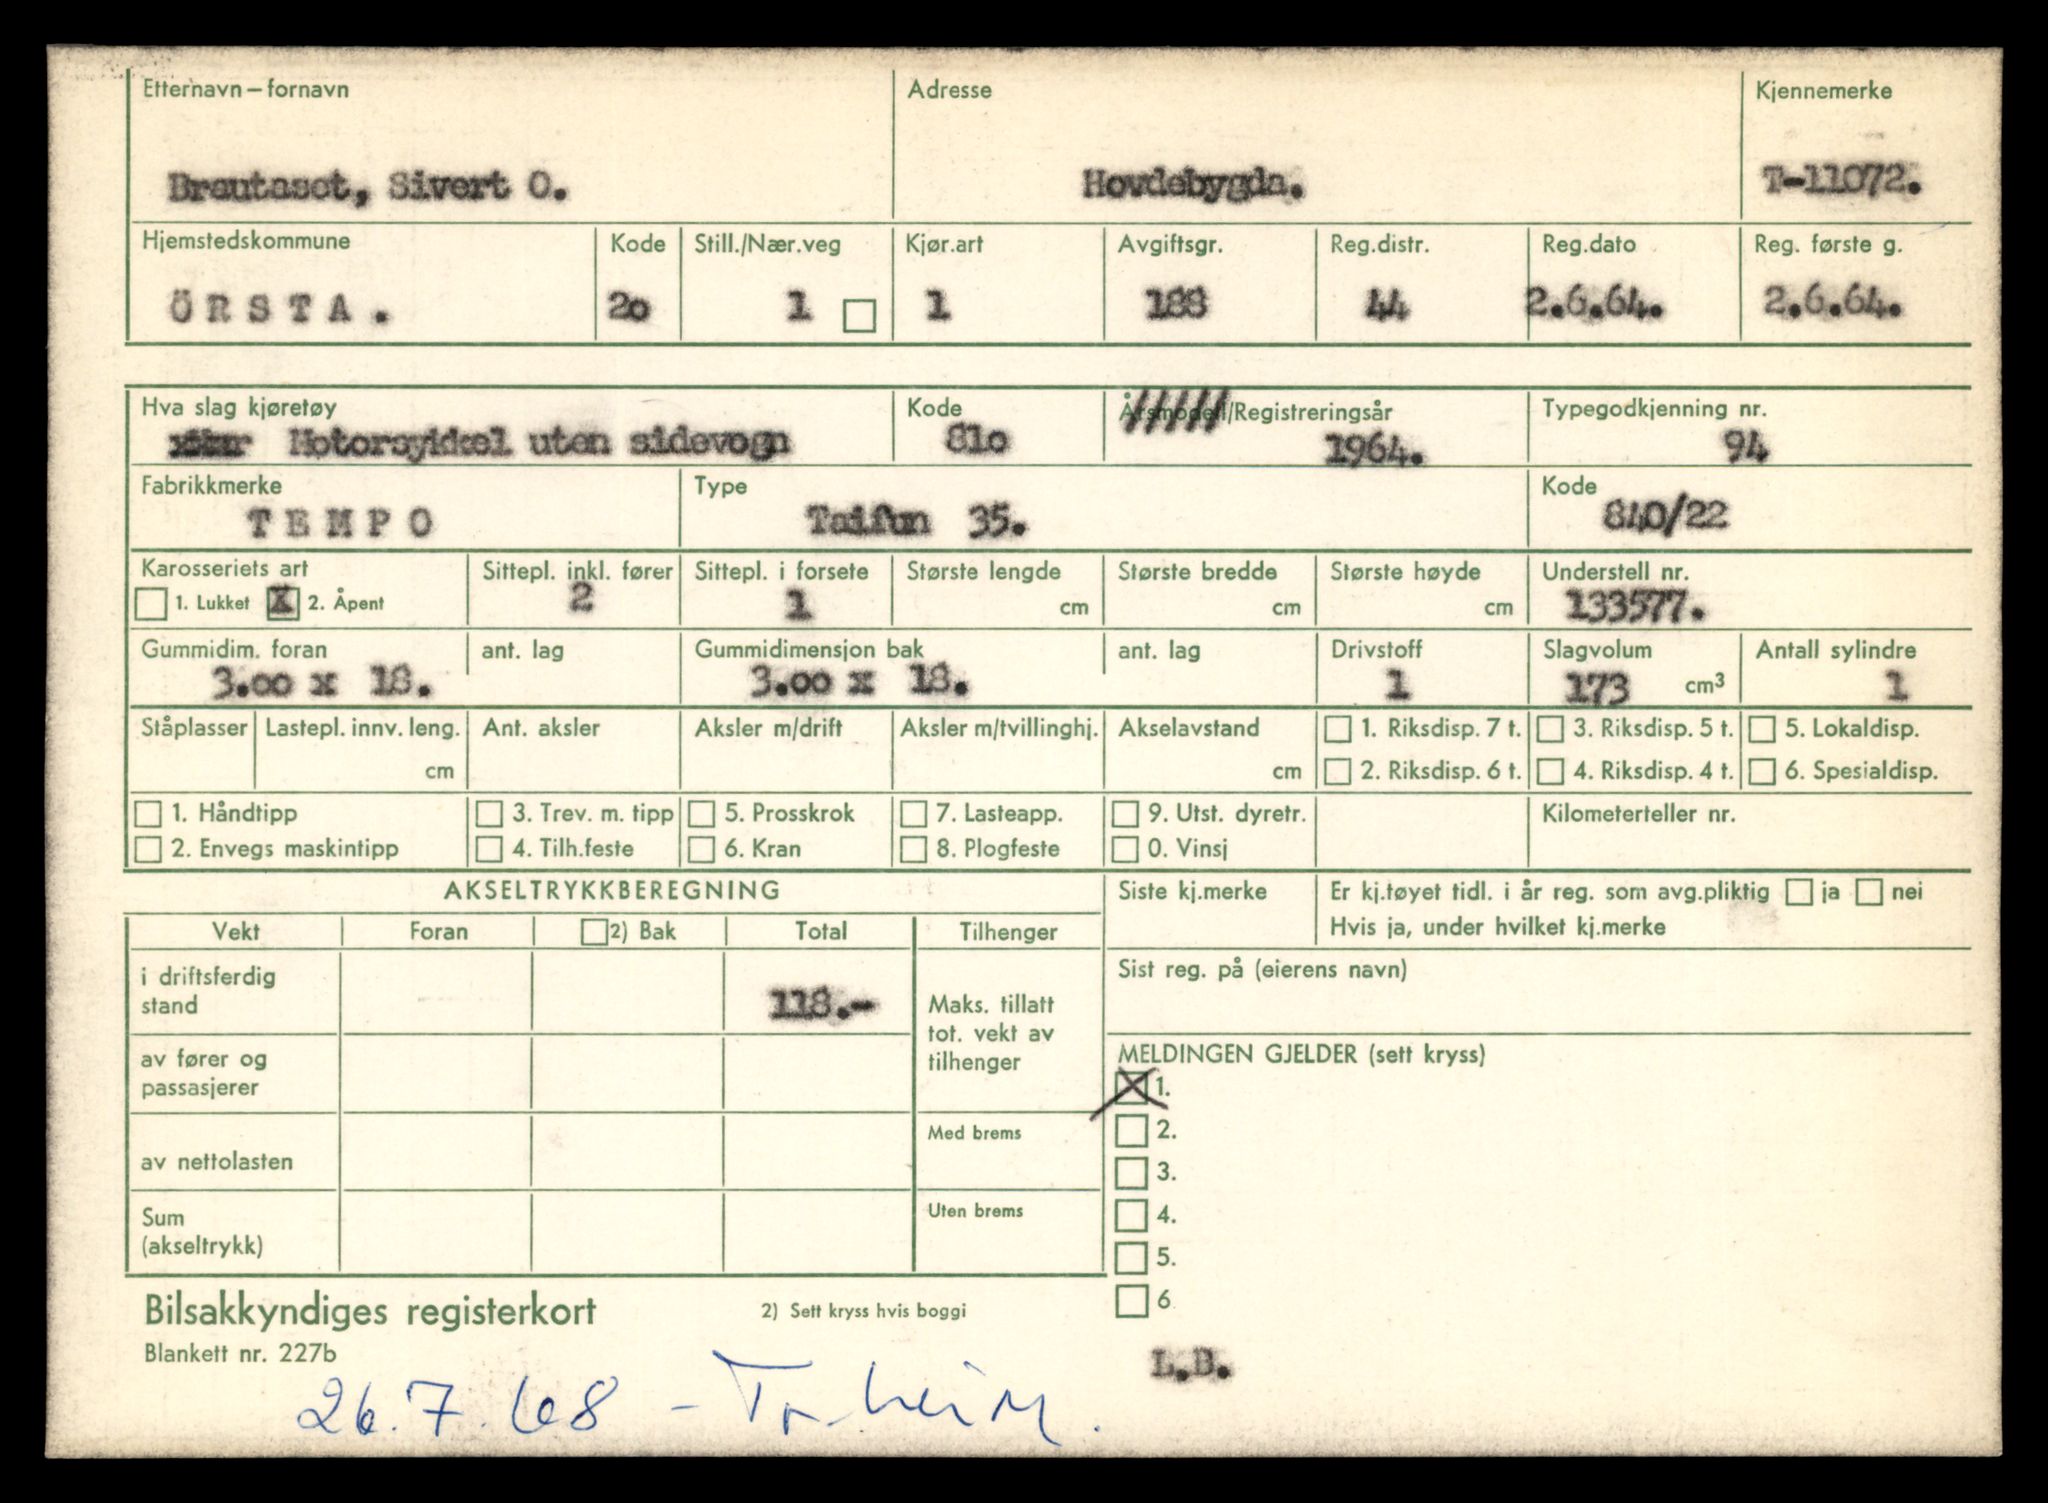 Etternavn – fornavn Adresse Kjennemerke
Brautaset, Sivert O. Hovdebygda. T-11072.
Hjemstedskommune Kode Still./Nær.veg Kjør.art Avgiftsgr. Reg.distr. Reg.dato Reg. første g.
ÖRSTA. 20 1 1 188 44 2.6.64. 2.6.64.
Hva slag kjøretøy Kode Årsmodell/Registreringsår Typegodkjenning nr.
Motorsykkel uten sidevogn 810 1964. 94
Fabrikkmerke Type Kode
TEMPO Taifun 35. 840/22
Karosseriets art Sittepl. inkl. fører Sittepl. i forsete Største lengde Største bredde Største høyde Understell nr.
1. Lukket X 2. Åpent 2 1 cm cm cm 133577.
Gummidim. foran ant. lag Gummidimensjon bak ant. lag Drivstoff Slagvolum Antall sylindre
3.00 x 18. 3.00 x 18. 1 173 cm³ 1
Ståplasser Lastepl. innv. leng. Ant. aksler Aksler m/drift Aksler m/tvillinghj. Akselavstand 1. Riksdisp. 7 t. 3. Riksdisp. 5 t. 5. Lokaldisp.
cm cm 2. Riksdisp. 6 t. 4. Riksdisp. 4 t. 6. Spesialdisp.
1. Håndtipp 3. Trev. m. tipp 5. Prosskrok 7. Lasteapp. 9. Utst. dyretr. Kilometerteller nr.
2. Envegs maskintipp 4. Tilh.feste 6. Kran 8. Plogfeste 0. Vinsj
AKSELTRYKKBEREGNING Siste kj.merke Er kj.tøyet tidl. i år reg. som avg.pliktig ja nei
Hvis ja, under hvilket kj.merke
Vekt Foran 2) Bak Total Tilhenger
Sist reg. på (eierens navn)
i driftsferdig
stand 118.- Maks. tillatt
tot. vekt av
tilhenger
av fører og
passasjerer
MELDINGEN GJELDER (sett kryss)
X 1.
2.
Med brems
av nettolasten
3.
4.
Sum
(akseltrykk)
Uten brems
5.
6
Bilsakkyndiges registerkort 2) Sett kryss hvis boggi
Blankett nr. 227b
L.B.
26.7.68 - Tr.heim.